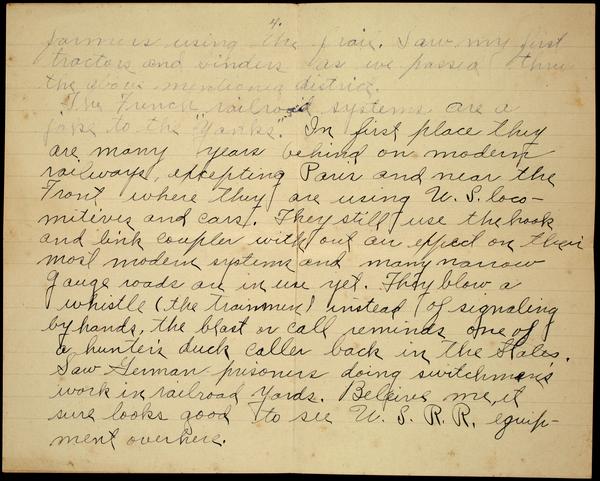 4.
farmers using the frail. Saw my first
tractors and binders as we passed thru
the above mentioned district.
The French railroad systems are a
joke to the "Yanks". In first place they
are many years behind on modern
railways, excepting Paris and near the
Front where they are using U.S. loco-
mitives and cars. They still use the hook
and link coupler with out an on their
most modern systems and many narrow
gauge roads are in use yet. They blow a
whistle (the trainmen) instead of signaling
by hands, the blast or call reminds one of
a hunter's duck caller back in the States.
Saw German prisoners doing switchmen's
work in railroad yards. Beleive me, it
sure looks good to see U.S.R.R. equip-
ment overhere.